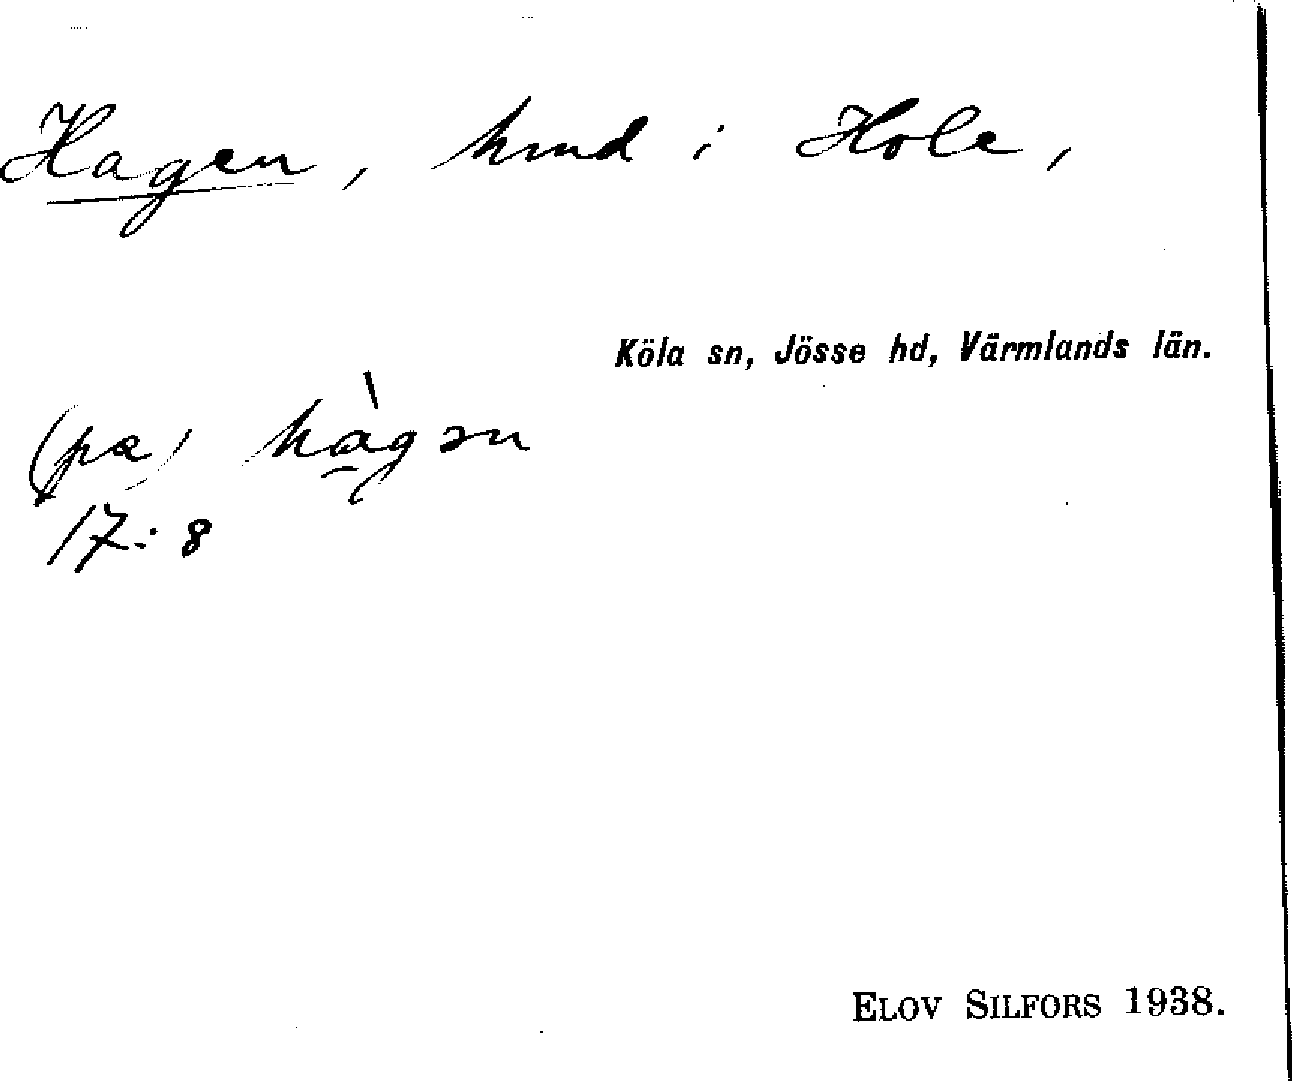 Hagen, hmd i Hole,
Köla sn, Jösse hd, Värmlands län.
(pæ) hàgən
17:8
ELOV SILFORS 1938.